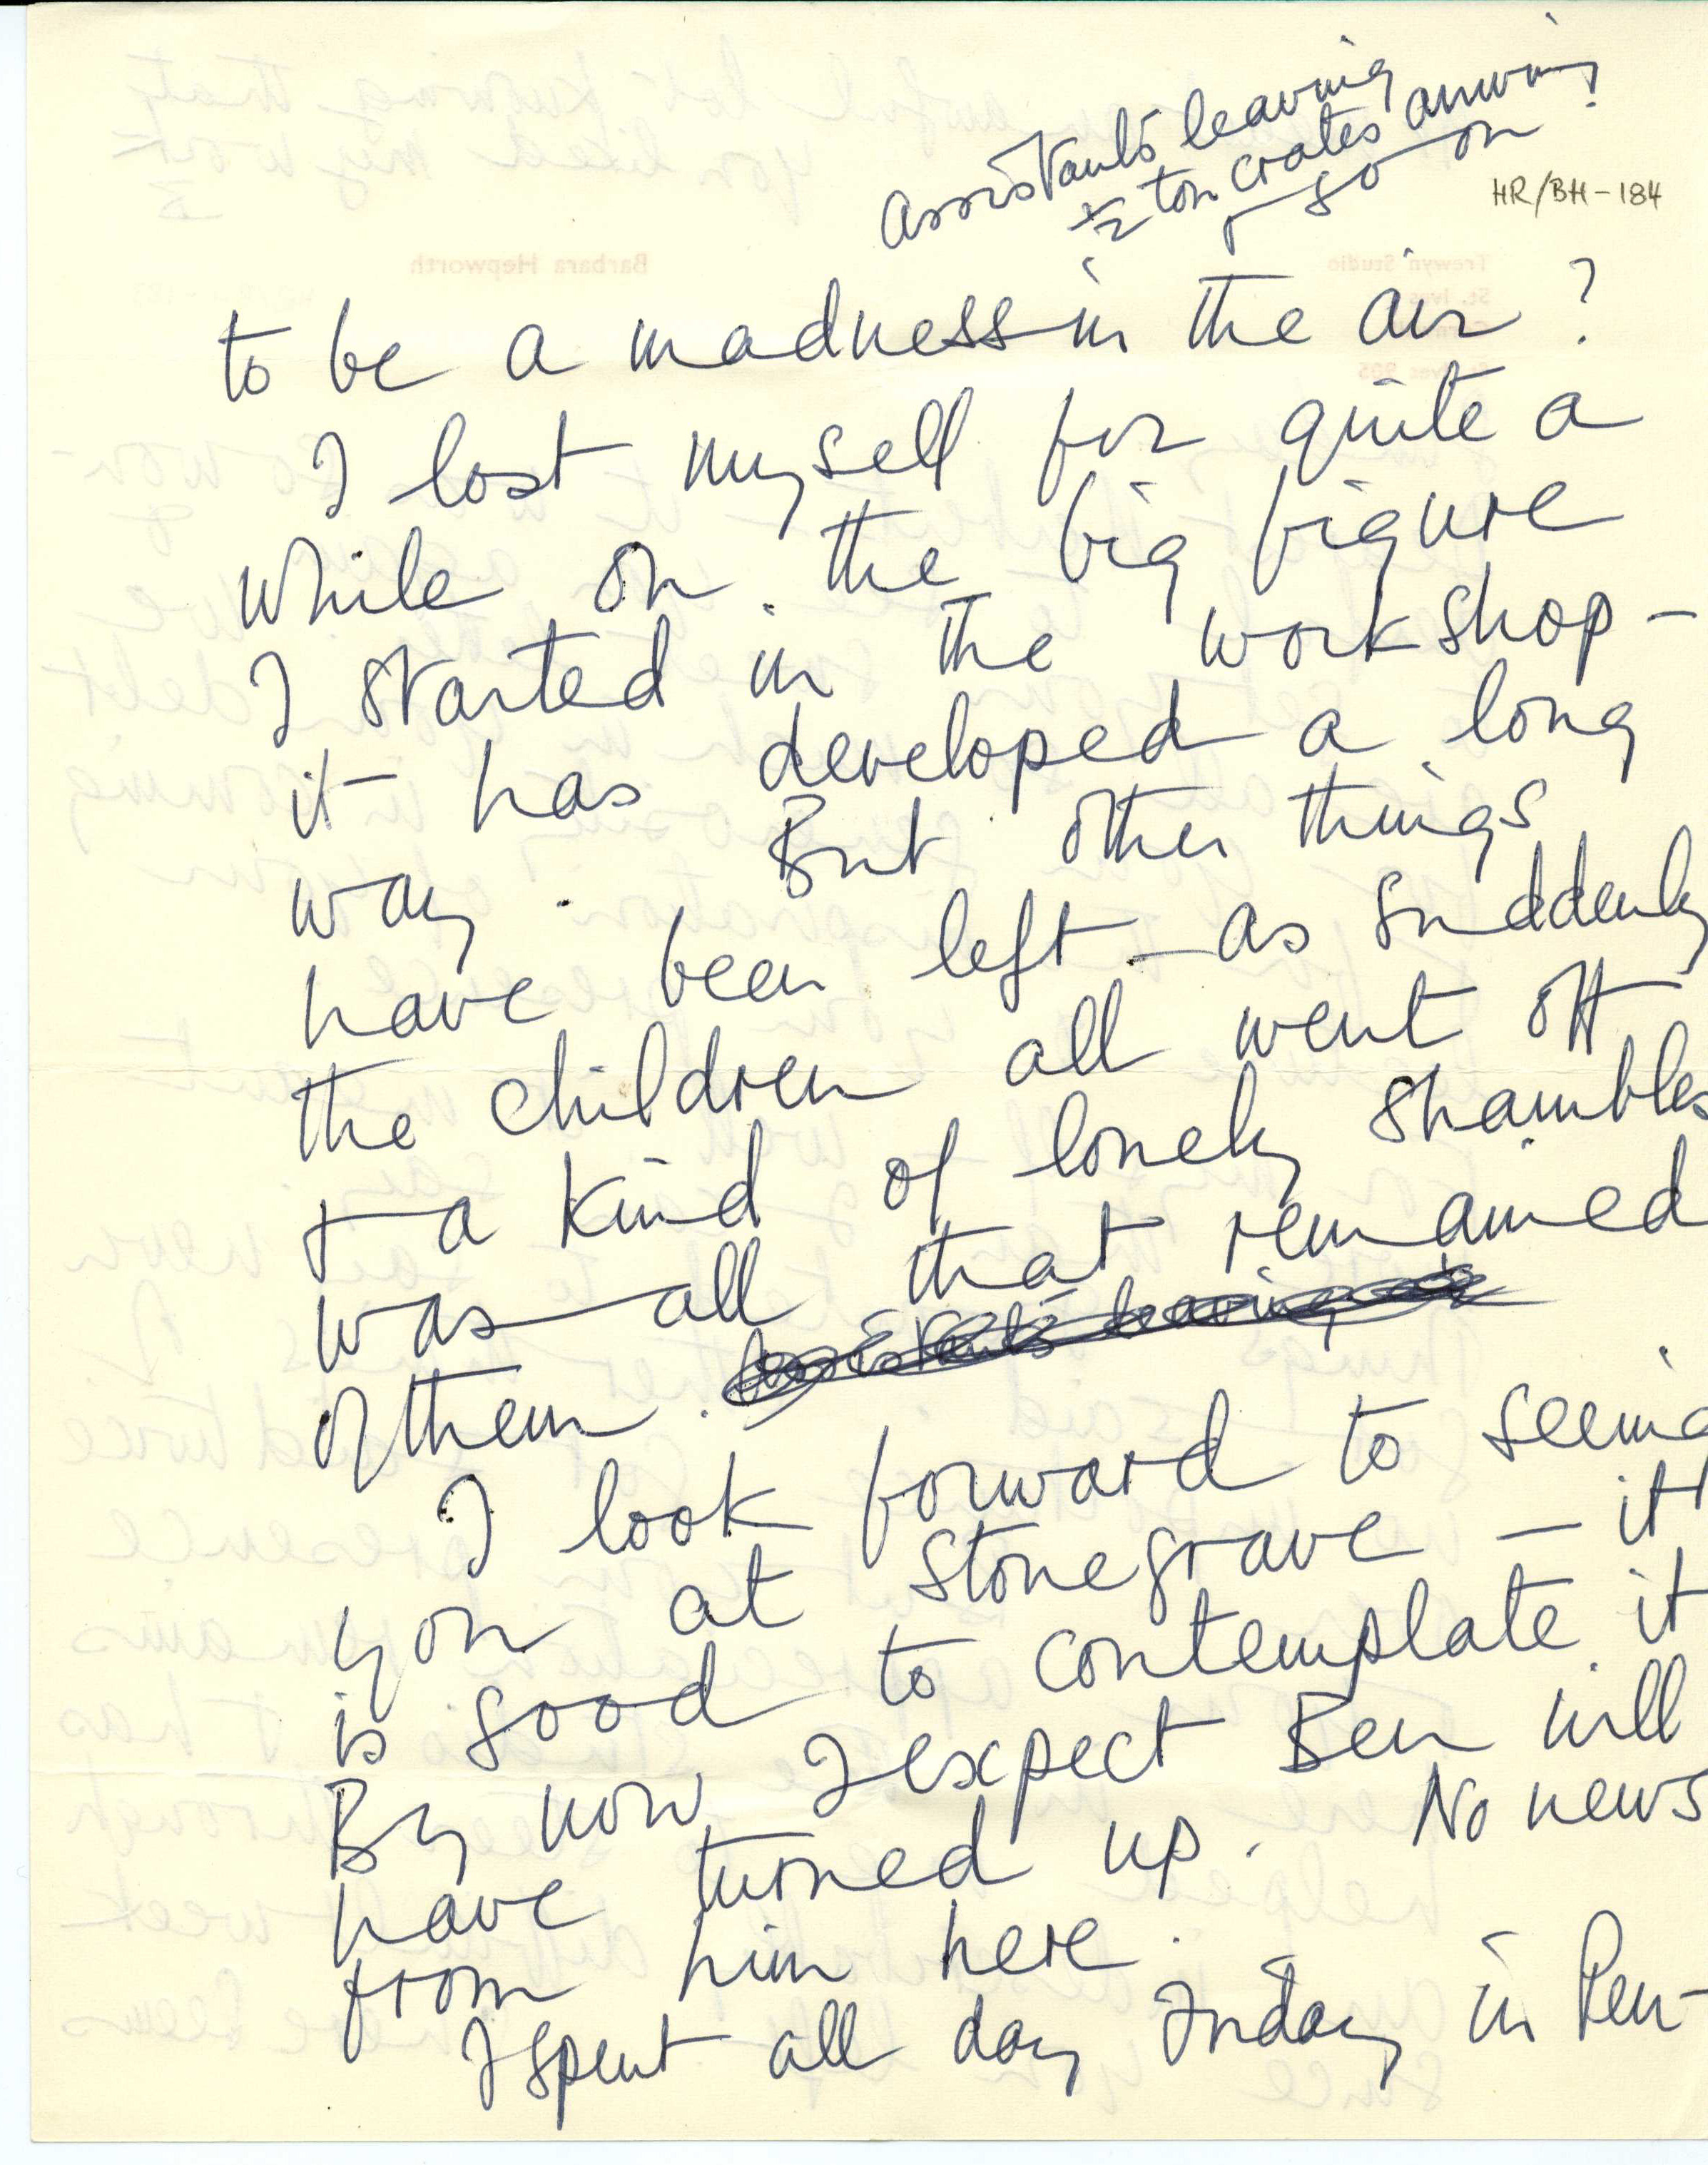 assistants leaving
½ ton crates arriving
& so on
HR/BH-184
Barbara Hepworth
Trewyn Studio
St. Ives
to be a madness in the air?
I lost myself for quite a
while on the big figure
I started in the workshop -
it has developed a long
way. But other things
have been left - as suddenly
the children all went off
& a kind of lonely shambles
was all that remained
of them. assistants leaving
I look forward to seeing
you at Stonegrave - it
is good to contemplate it
By now I expect Ben will
have turned up. No news
from him here.
I spent all day Friday in Pen-